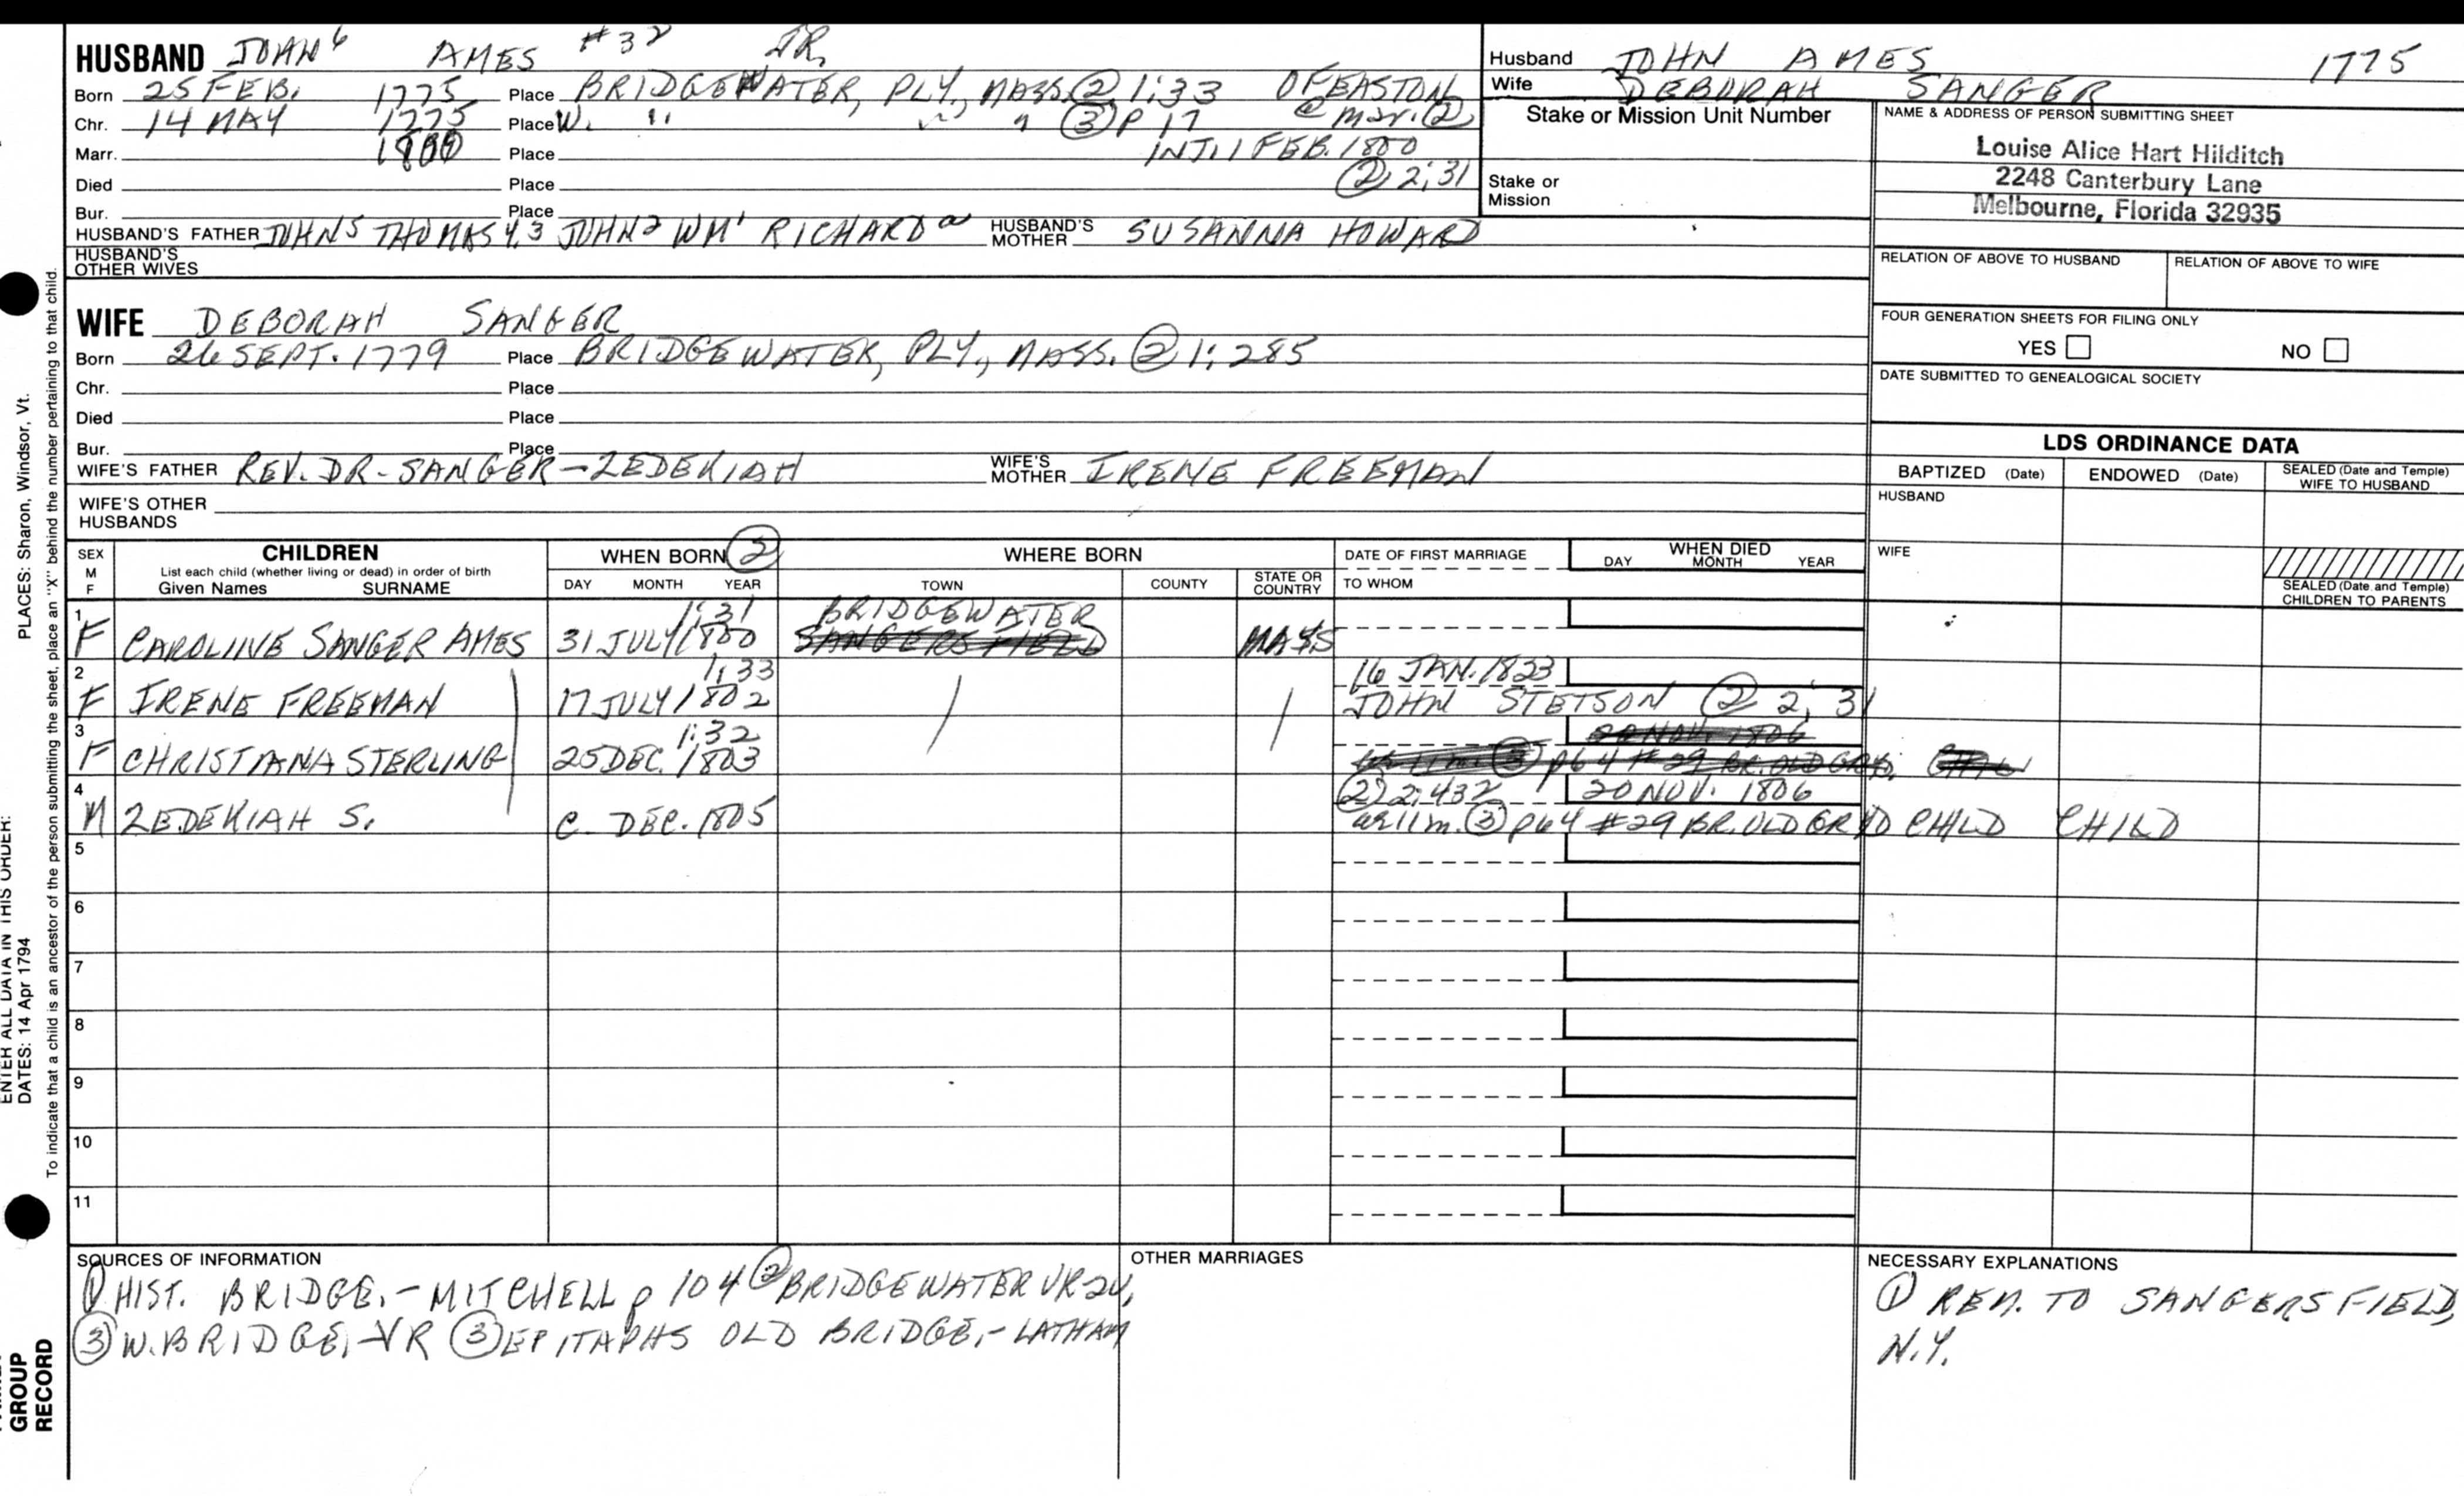 HUSBAND JOHN⁶ AMES #32 JR.
Born 25 FEB. 1775 Place BRIDGEWATER, PLY., MASS. ② 1:33 OF EASTON
Chr. 14 MAY 1775 Place W. " " " ③ p 17 @ mar. ②
Marr. 1800 Place INT. 1 FEB. 1800
Died Place ② 2:31
Bur. Place
HUSBAND'S FATHER JOHN⁵ THOMAS⁴,³ JOHN² WM¹ RICHARDᵃ HUSBAND'S MOTHER SUSANNA HOWARD
HUSBAND'S OTHER WIVES
Husband JOHN AMES 1775
Wife DEBORAH SANGER
Stake or Mission Unit Number
Stake or Mission
NAME & ADDRESS OF PERSON SUBMITTING SHEET
Louise Alice Hart Hilditch
2248 Canterbury Lane
Melbourne, Florida 32935
RELATION OF ABOVE TO HUSBAND RELATION OF ABOVE TO WIFE
FOUR GENERATION SHEETS FOR FILING ONLY
YES NO
DATE SUBMITTED TO GENEALOGICAL SOCIETY
WIFE DEBORAH SANGER
Born 26 SEPT. 1779 Place BRIDGEWATER, PLY., MASS. ② 1:285
Chr. Place
Died Place
Bur. Place
WIFE'S FATHER REV. DR - SANGER - ZEDEKIAH WIFE'S MOTHER IRENE FREEMAN
WIFE'S OTHER HUSBANDS
LDS ORDINANCE DATA
BAPTIZED (Date) ENDOWED (Date) SEALED (Date and Temple) WIFE TO HUSBAND
HUSBAND
WIFE
SEALED (Date and Temple) CHILDREN TO PARENTS
SEX M F
CHILDREN
List each child (whether living or dead) in order of birth
Given Names SURNAME
WHEN BORN ②
DAY MONTH YEAR
WHERE BORN
TOWN COUNTY STATE OR COUNTRY
DATE OF FIRST MARRIAGE
TO WHOM
WHEN DIED
DAY MONTH YEAR
1 1:31 BRIDGEWATER
F CAROLINE SANGER AMES 31 JULY 1800 SANGERSFIELD MASS
2 1:33 16 JAN. 1823
F IRENE FREEMAN 17 JULY 1802 / / JOHN STETSON ② 2:31
3 1:32 20 NOV. 1806
F CHRISTIANA STERLING 25 DEC. 1803 ③ p 64 #29 BR. OLD GRYD.
4 ② 2:432 20 NOV. 1806
M ZEDEKIAH S. C. DEC. 1805 ae 11 m. ③ p 64 #29 BR. OLD GRYD CHILD CHILD
5
6
7
8
9
10
11
SOURCES OF INFORMATION
① HIST. BRIDGE. - MITCHELL p 104 ② BRIDGEWATER VR 2V.
③ W. BRIDGE. VR ③ EPITAPHS OLD BRIDGE. - LATHAM
OTHER MARRIAGES
NECESSARY EXPLANATIONS
① REM. TO SANGERSFIELD,
N.Y.
PLACES: Sharon, Windsor, Vt.
To indicate that a child is an ancestor of the person submitting the sheet, place an "X" behind the number pertaining to that child.
ENTER ALL DATA IN THIS ORDER:
DATES: 14 Apr 1794
GROUP
RECORD